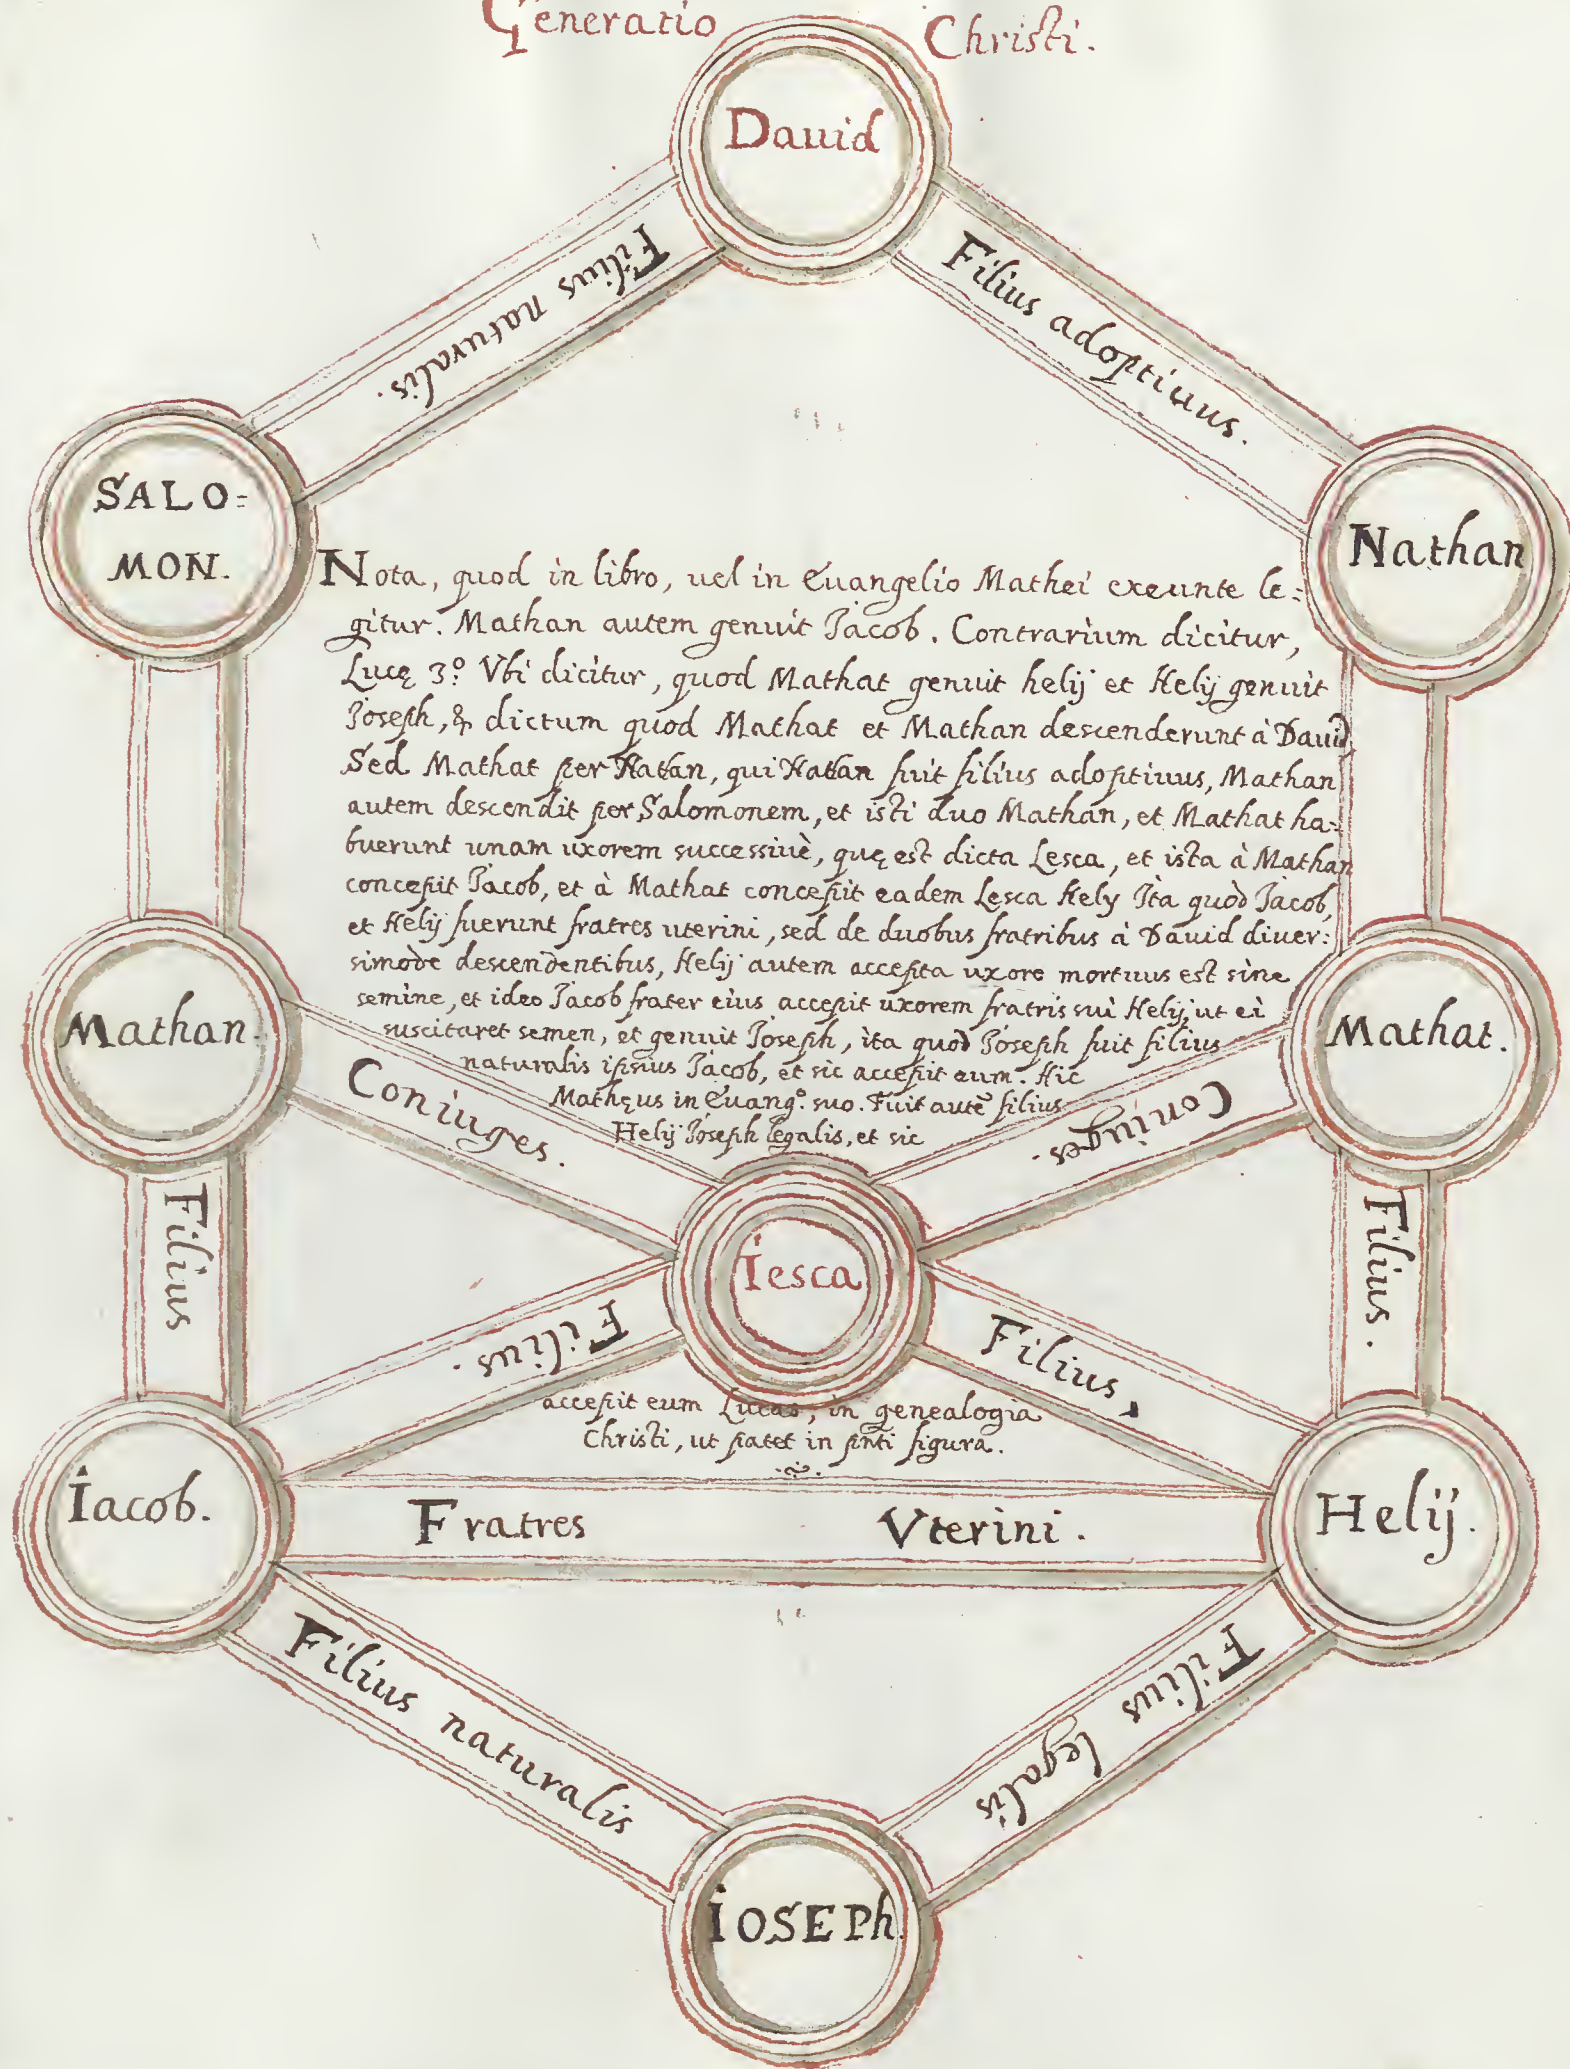 Generatio Christi.
Dauid
Filius naturalis.
Filius adoptiuus.
SALO=
MON.
Nathan
Nota, quod in libro, uel in Euangelio Mathei exeunte le=
gitur. Mathan autem genuit Jacob. Contrarium dicitur,
Lucę 3.º Vbi dicitur, quod Mathat genuit helij et Helij genuit
Joseph, & dictum quod Mathat et Mathan descenderunt à Dauid,
Sed Mathat per Natan, qui Natan fuit filius adoptiuus, Mathan
autem descendit per Salomonem, et isti duo Mathan, et Mathat ha=
buerunt unam uxorem successiuè, quę est dicta Lesca, et ista à Mathan
concepit Jacob, et à Mathat concepit eadem Lesca Hely Ita quòd Jacob,
et Helij fuerunt fratres uterini, sed de duobus fratribus à Dauid diuer=
simòde descendentibus, Helij autem accepta uxore mortuus est sine
semine, et ideo Jacob frater eius accepit uxorem fratris sui Helij, ut ei
suscitaret semen, et genuit Joseph, ita quod Joseph fuit filius
naturalis ipsius Jacob, et sic accepit eum. Hic
Mathęus in Euang.º suo. Fuit autẽ filius
Helij Joseph legalis, et sic
Mathan.
Mathat.
Coniuges.
Coniuges.
Iesca
Filius
Filius.
Filius.
Filius,
accepit eum Lucas, in genealogia
Christi, ut patet in pñti figura.
Iacob.
Fratres Vterini.
Helij.
Filius naturalis
Filius legalis
IOSEPh.